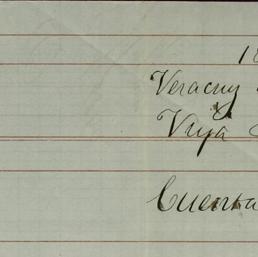 18
Veracruz
Viya
Cuenta